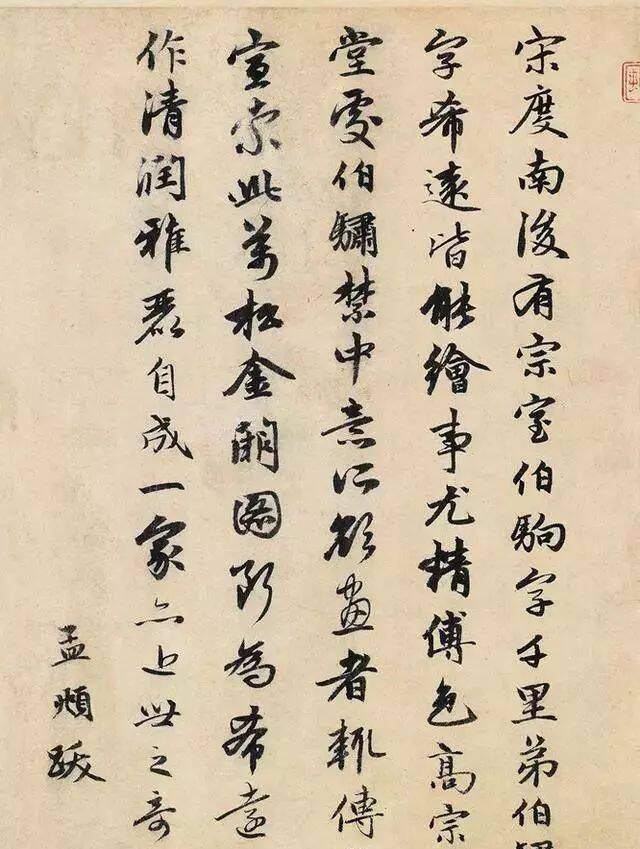 宋度南後有宗室伯駒字千里弟伯驌
字希遠皆能繪事尤精傅色高宗
堂處伯驌禁中意所欲畫者輒傳
宣索此萬松金闕圖斷為希遠
作清潤雅麗自成一家亦近世之奇
孟頫跋